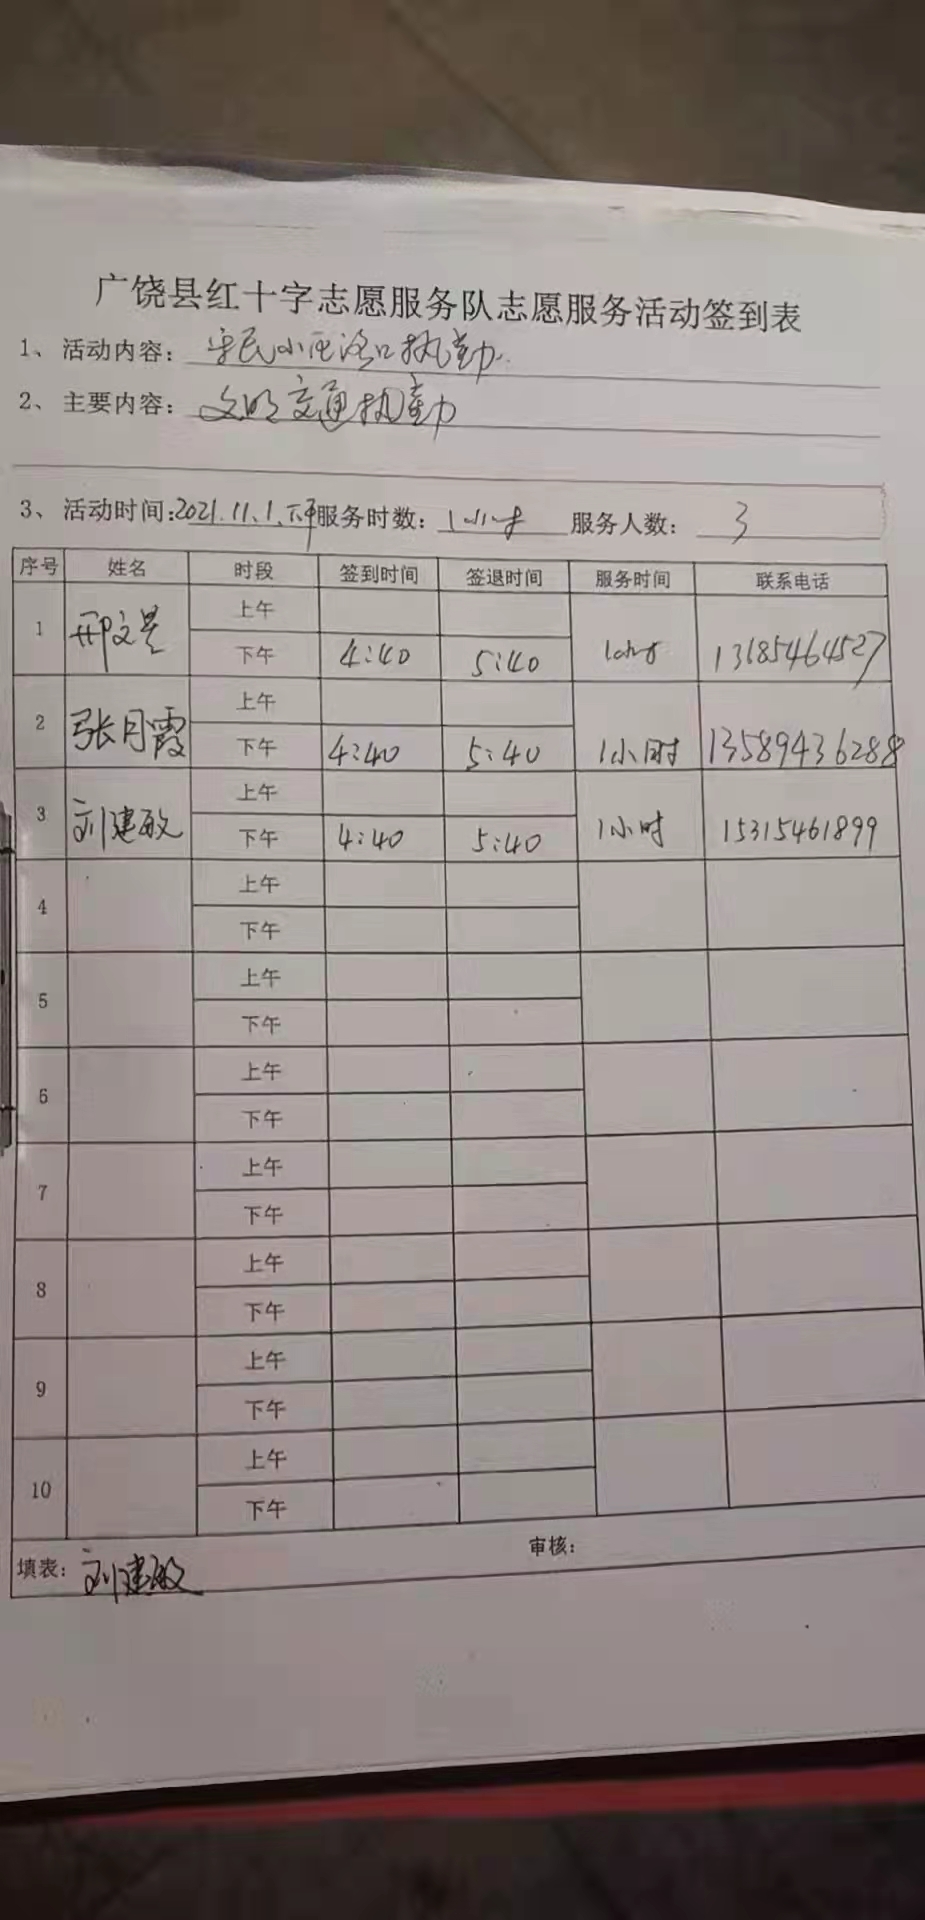 广饶县红十字志愿服务队志愿服务活动签到表
1、活动内容：民小区路口执勤
2、主要内容：文明交通执勤
3、活动时间：2021.11.1.下午 服务时数：1小时 服务人数：3
序号 姓名 时段 签到时间 签退时间 服务时间 联系电话
1 邢文 上午
下午 4:40 5:40 1小时 13185464527
2 张月霞 上午
下午 4:40 5:40 1小时 13589436288
3 刘建敏 上午
下午 4:40 5:40 1小时 15315461899
4 上午
下午
5 上午
下午
6 上午
下午
7 上午
下午
8 上午
下午
9 上午
下午
10 上午
下午
填表：刘建敏 审核：